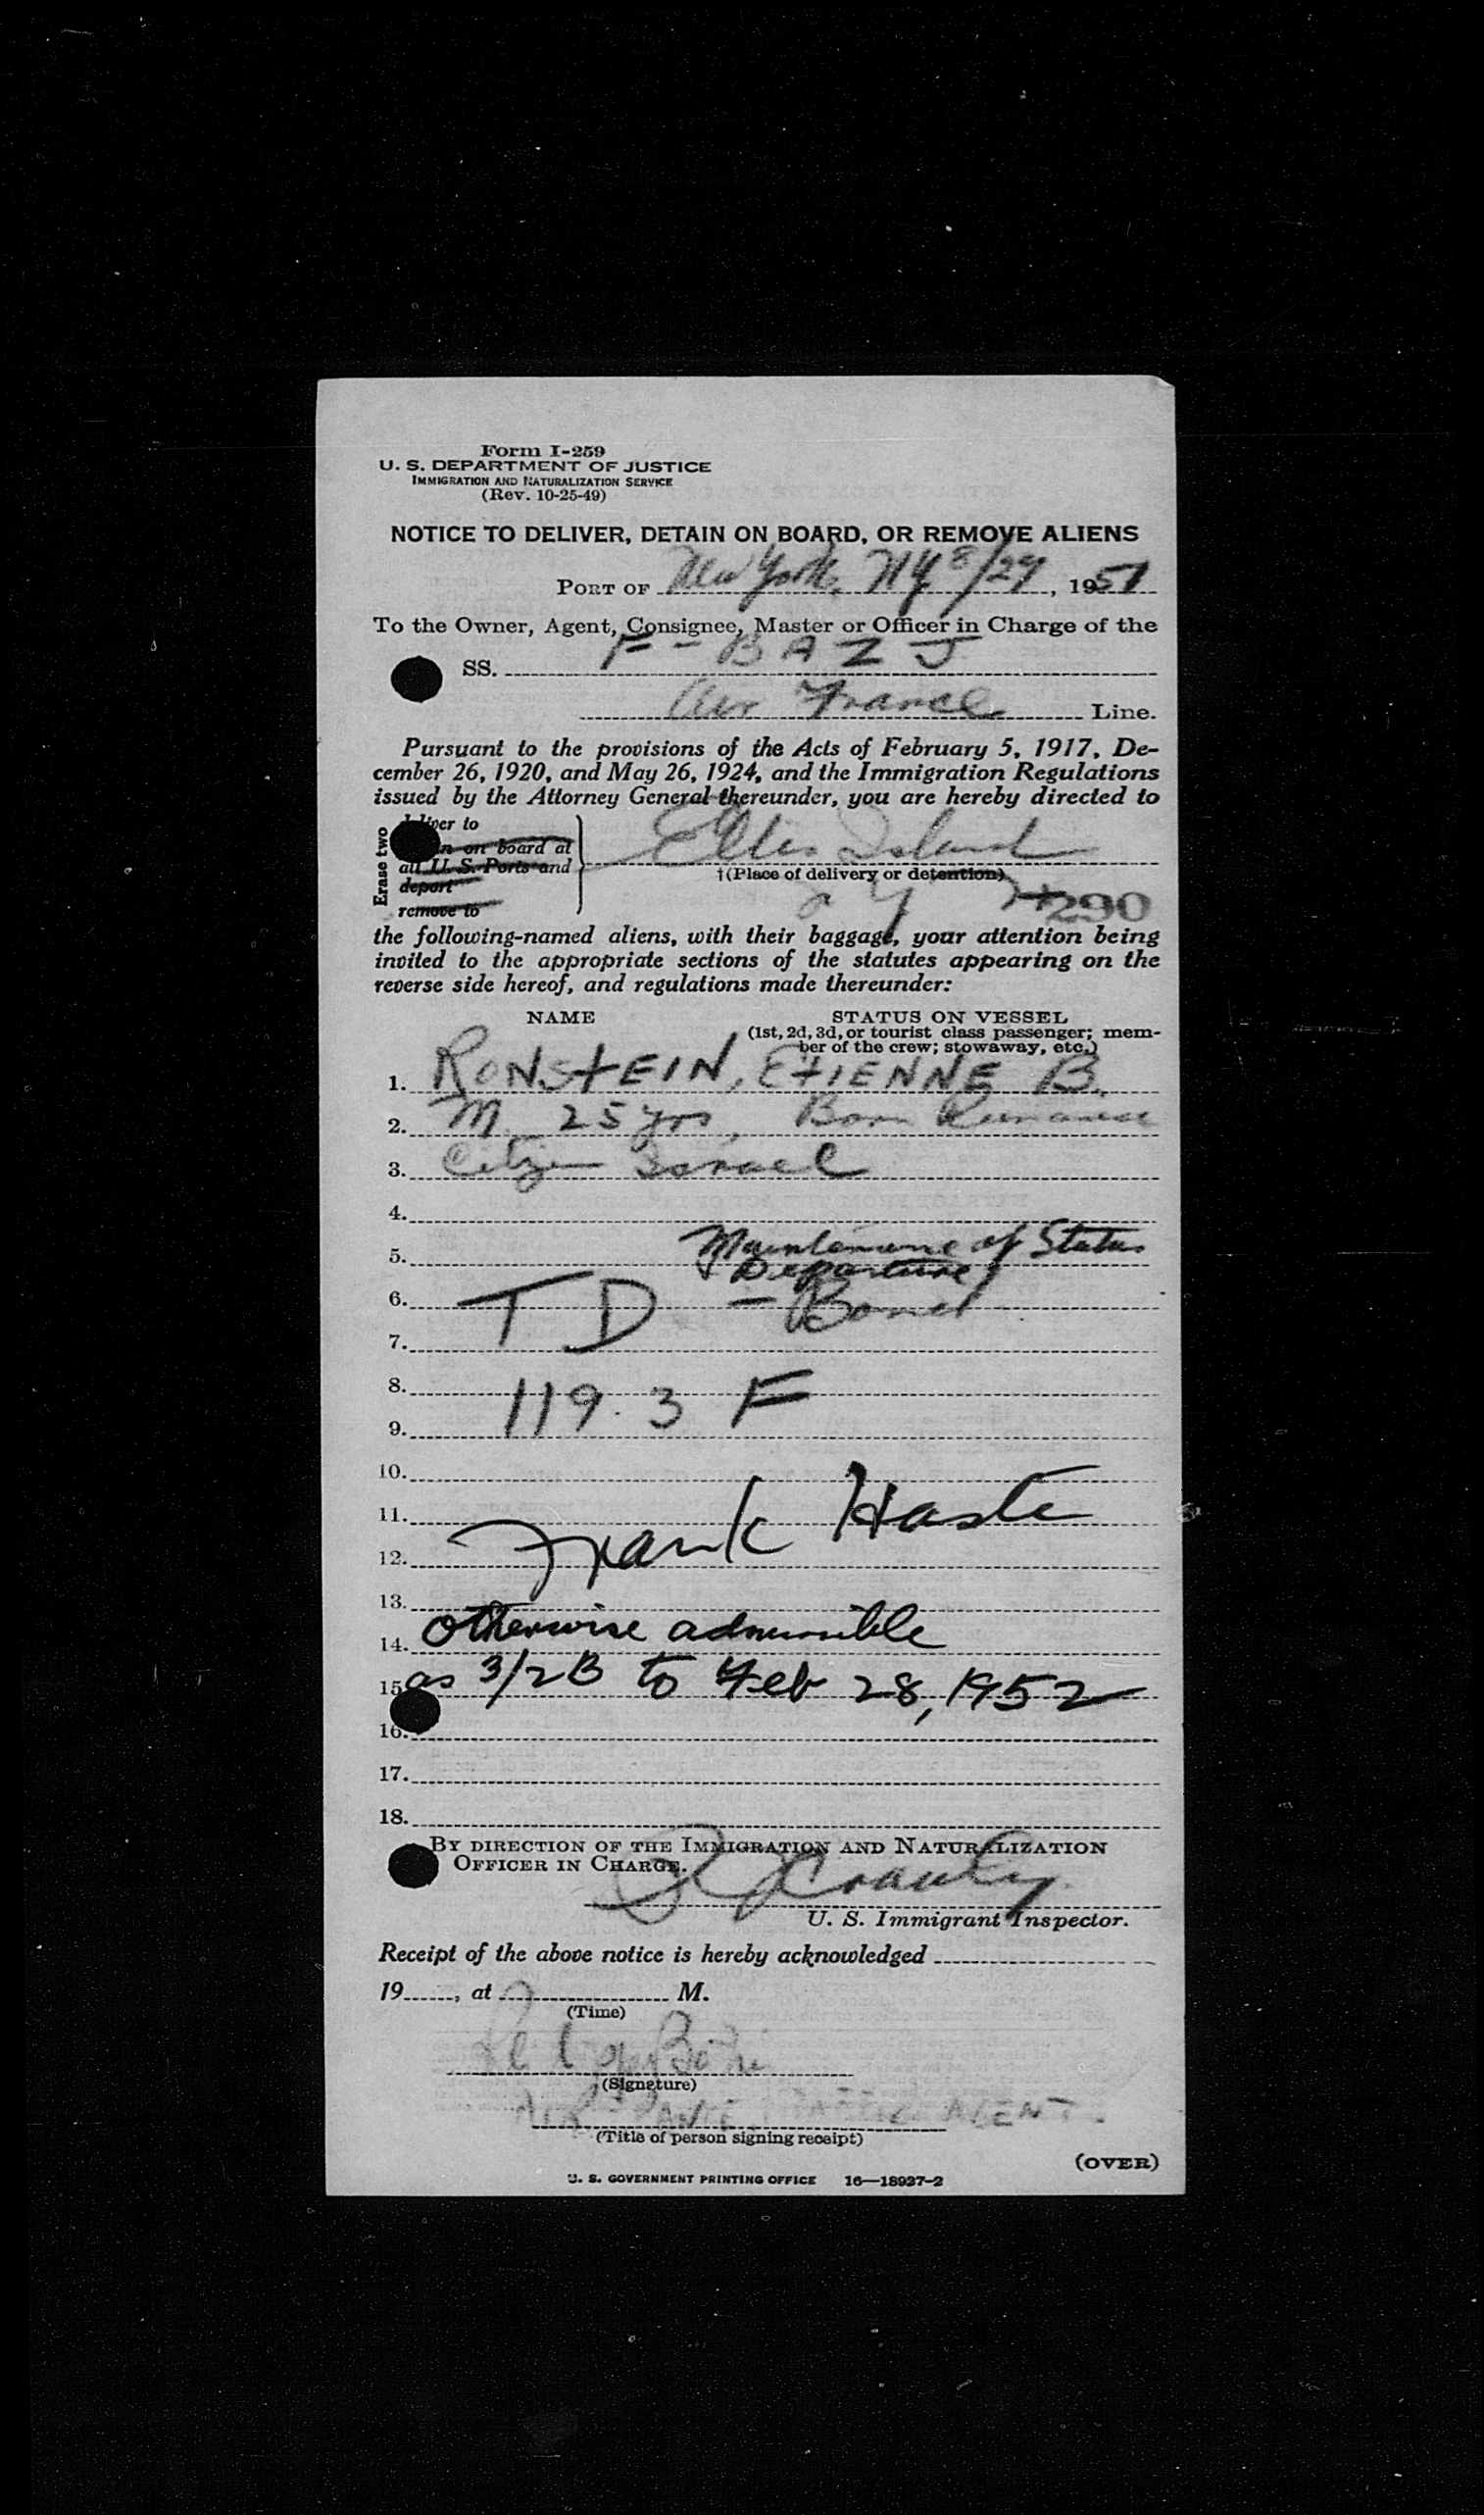 Form I-259
U. S. DEPARTMENT OF JUSTICE
IMMIGRATION AND NATURALIZATION SERVICE
(Rev. 10-25-49)
NOTICE TO DELIVER, DETAIN ON BOARD, OR REMOVE ALIENS
PORT OF New York, NY 8/29, 1951
To the Owner, Agent, Consignee, Master or Officer in Charge of the
SS. F-BAZJ
Air France Line.
Pursuant to the provisions of the Acts of February 5, 1917, De-
cember 26, 1920, and May 26, 1924, and the Immigration Regulations
issued by the Attorney General thereunder, you are hereby directed to
Erase two
to
on board at
all U. S. Ports and
deport
remove to
Ellis Island
†(Place of delivery or detention)
290
the following-named aliens, with their baggage, your attention being
invited to the appropriate sections of the statutes appearing on the
reverse side hereof, and regulations made thereunder:
NAME STATUS ON VESSEL
(1st, 2d, 3d, or tourist class passenger; mem-
ber of the crew; stowaway, etc.)
1. RONSTEIN, ETIENNE B.
2. M 25 yrs, Born Rumania
3. Citizen Israel
4.
5. Maintenance of Status
Departure
6. TD - Bond
7.
8.
9. 119.3 F
10.
11. Frank Haste
12.
13.
14. otherwise admissible
15. as 3/2B to Feb 28, 1952
16.
17.
18.
BY DIRECTION OF THE IMMIGRATION AND NATURALIZATION
OFFICER IN CHARGE.
U. S. Immigrant Inspector.
Receipt of the above notice is hereby acknowledged
19, at M.
(Time)
(Signature)
AGENT.
(Title of person signing receipt)
(OVER)
U. S. GOVERNMENT PRINTING OFFICE 16—18937-2